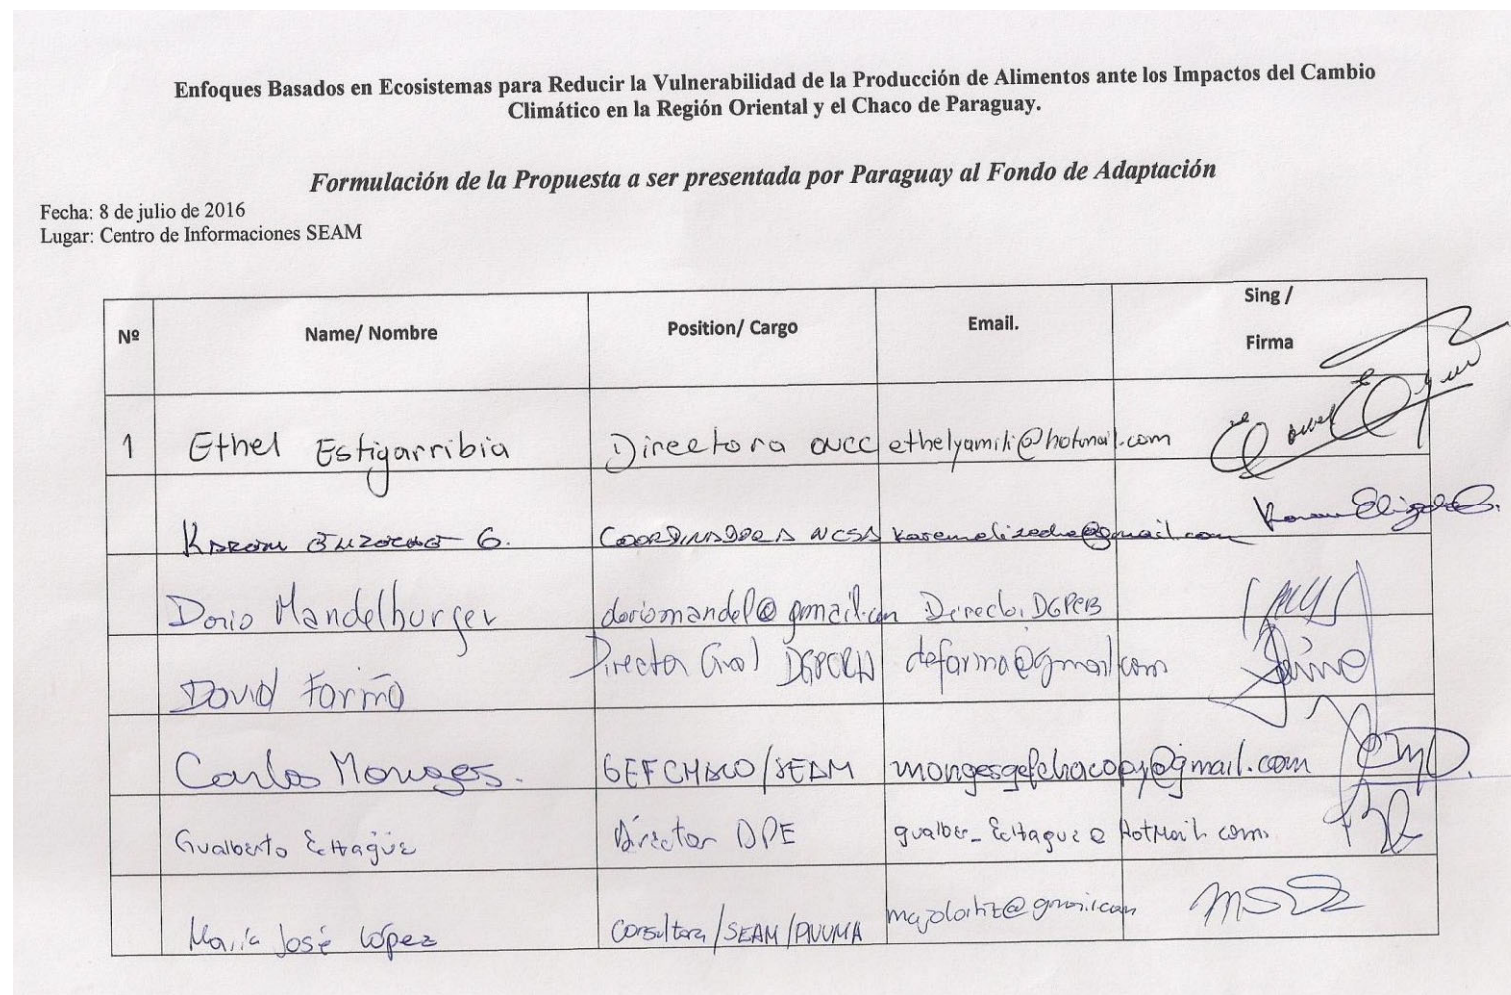 Enfoques Basados en Ecosistemas para Reducir la Vulnerabilidad de la Producción de Alimentos ante los Impactos del Cambio
Climático en la Región Oriental y el Chaco de Paraguay.
Formulación de la Propuesta a ser presentada por Paraguay al Fondo de Adaptación
Fecha: 8 de julio de 2016
Lugar: Centro de Informaciones SEAM
Nº Name/ Nombre Position/ Cargo Email. Sing / Firma
1 Ethel Estigarribia Directora ethelyamili@hotmail.com
G. COORDINADORA NCSA
Dario Mandelburger dariomandel@gmail.com Director DGPCB
David Fariña Director Gral DGPCRH defarina@gmail.com
Carlos Monges. GEFCHACO/SEAM mongesgefchacopy@gmail.com
Gualberto Echagüe Director DPE gualber_Echague@HotMail.com.
María José López Consultora/SEAM/PNUMA